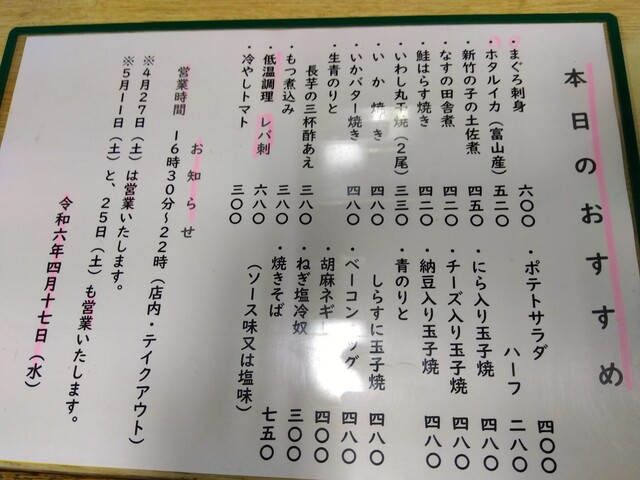 本日のおすすめ
・まぐろ刺身 六〇〇
・ホタルイカ（富山産） 五二〇
・新竹の子の土佐煮 四五〇
・なすの田舎煮 四二〇
・鮭はらす焼き 四二〇
・いわし丸干焼（２尾） 三三〇
・いか焼き 四八〇
・いかバター焼き 四八〇
・生青のりと
長芋の三杯酢あえ 三八〇
・もつ煮込み 三八〇
・低温調理 レバ刺 六八〇
・冷やしトマト 三〇〇
・ポテトサラダ 四〇〇
ハーフ 二八〇
・にら入り玉子焼 四八〇
・チーズ入り玉子焼 四八〇
・納豆入り玉子焼 四八〇
・青のりと
しらすに玉子焼 四八〇
・ベーコンエッグ 四八〇
・胡麻ネギー 四〇〇
・ねぎ塩冷奴 三〇〇
・焼きそば 七五〇
（ソース味又は塩味）
お知らせ
営業時間 １６時３０分～２２時（店内・テイクアウト）
※４月２７日（土）は営業いたします。
※５月１１日（土）と、２５日（土）も営業いたします。
令和六年四月十七日（水）